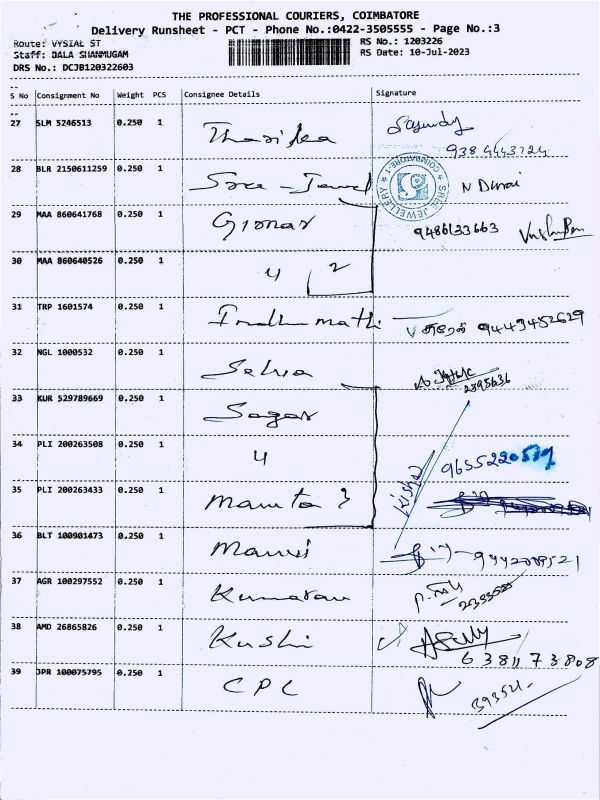 THE PROFESSIONAL COURIERS, COIMBATORE
Delivery Runsheet - PCT - Phone No.:0422-3505555 - Page No.:3
Route: VYSIAL ST RS No.: 1203226
Staff: BALA SHANMUGAM RS Date: 10-Jul-2023
DRS No.: DCJB120322603
S No Consignment No Weight PCS Consignee Details Signature
27 SLM 5246513 0.250 1
28 BLR 2150611259 0.250 1 Sree - Jewel N Durai
SREE JEWELLERY COIMBATORE-1
29 MAA 860641768 0.250 1 9486133663
30 MAA 860640526 0.250 1 4 2
31 TRP 1601574 0.250 1 Indhumathi 9443452629
32 NGL 1000532 0.250 1 Selva 2395636
33 KUR 529789669 0.250 1 Sagar
34 PLI 200263508 0.250 1 4 9655220579
35 PLI 200263433 0.250 1 3
36 BLT 100901473 0.250 1
37 AGR 100297552 0.250 1 Kumaran
38 AMD 26865826 0.250 1 Kushi 6381173808
39 JPR 100075795 0.250 1 CPC